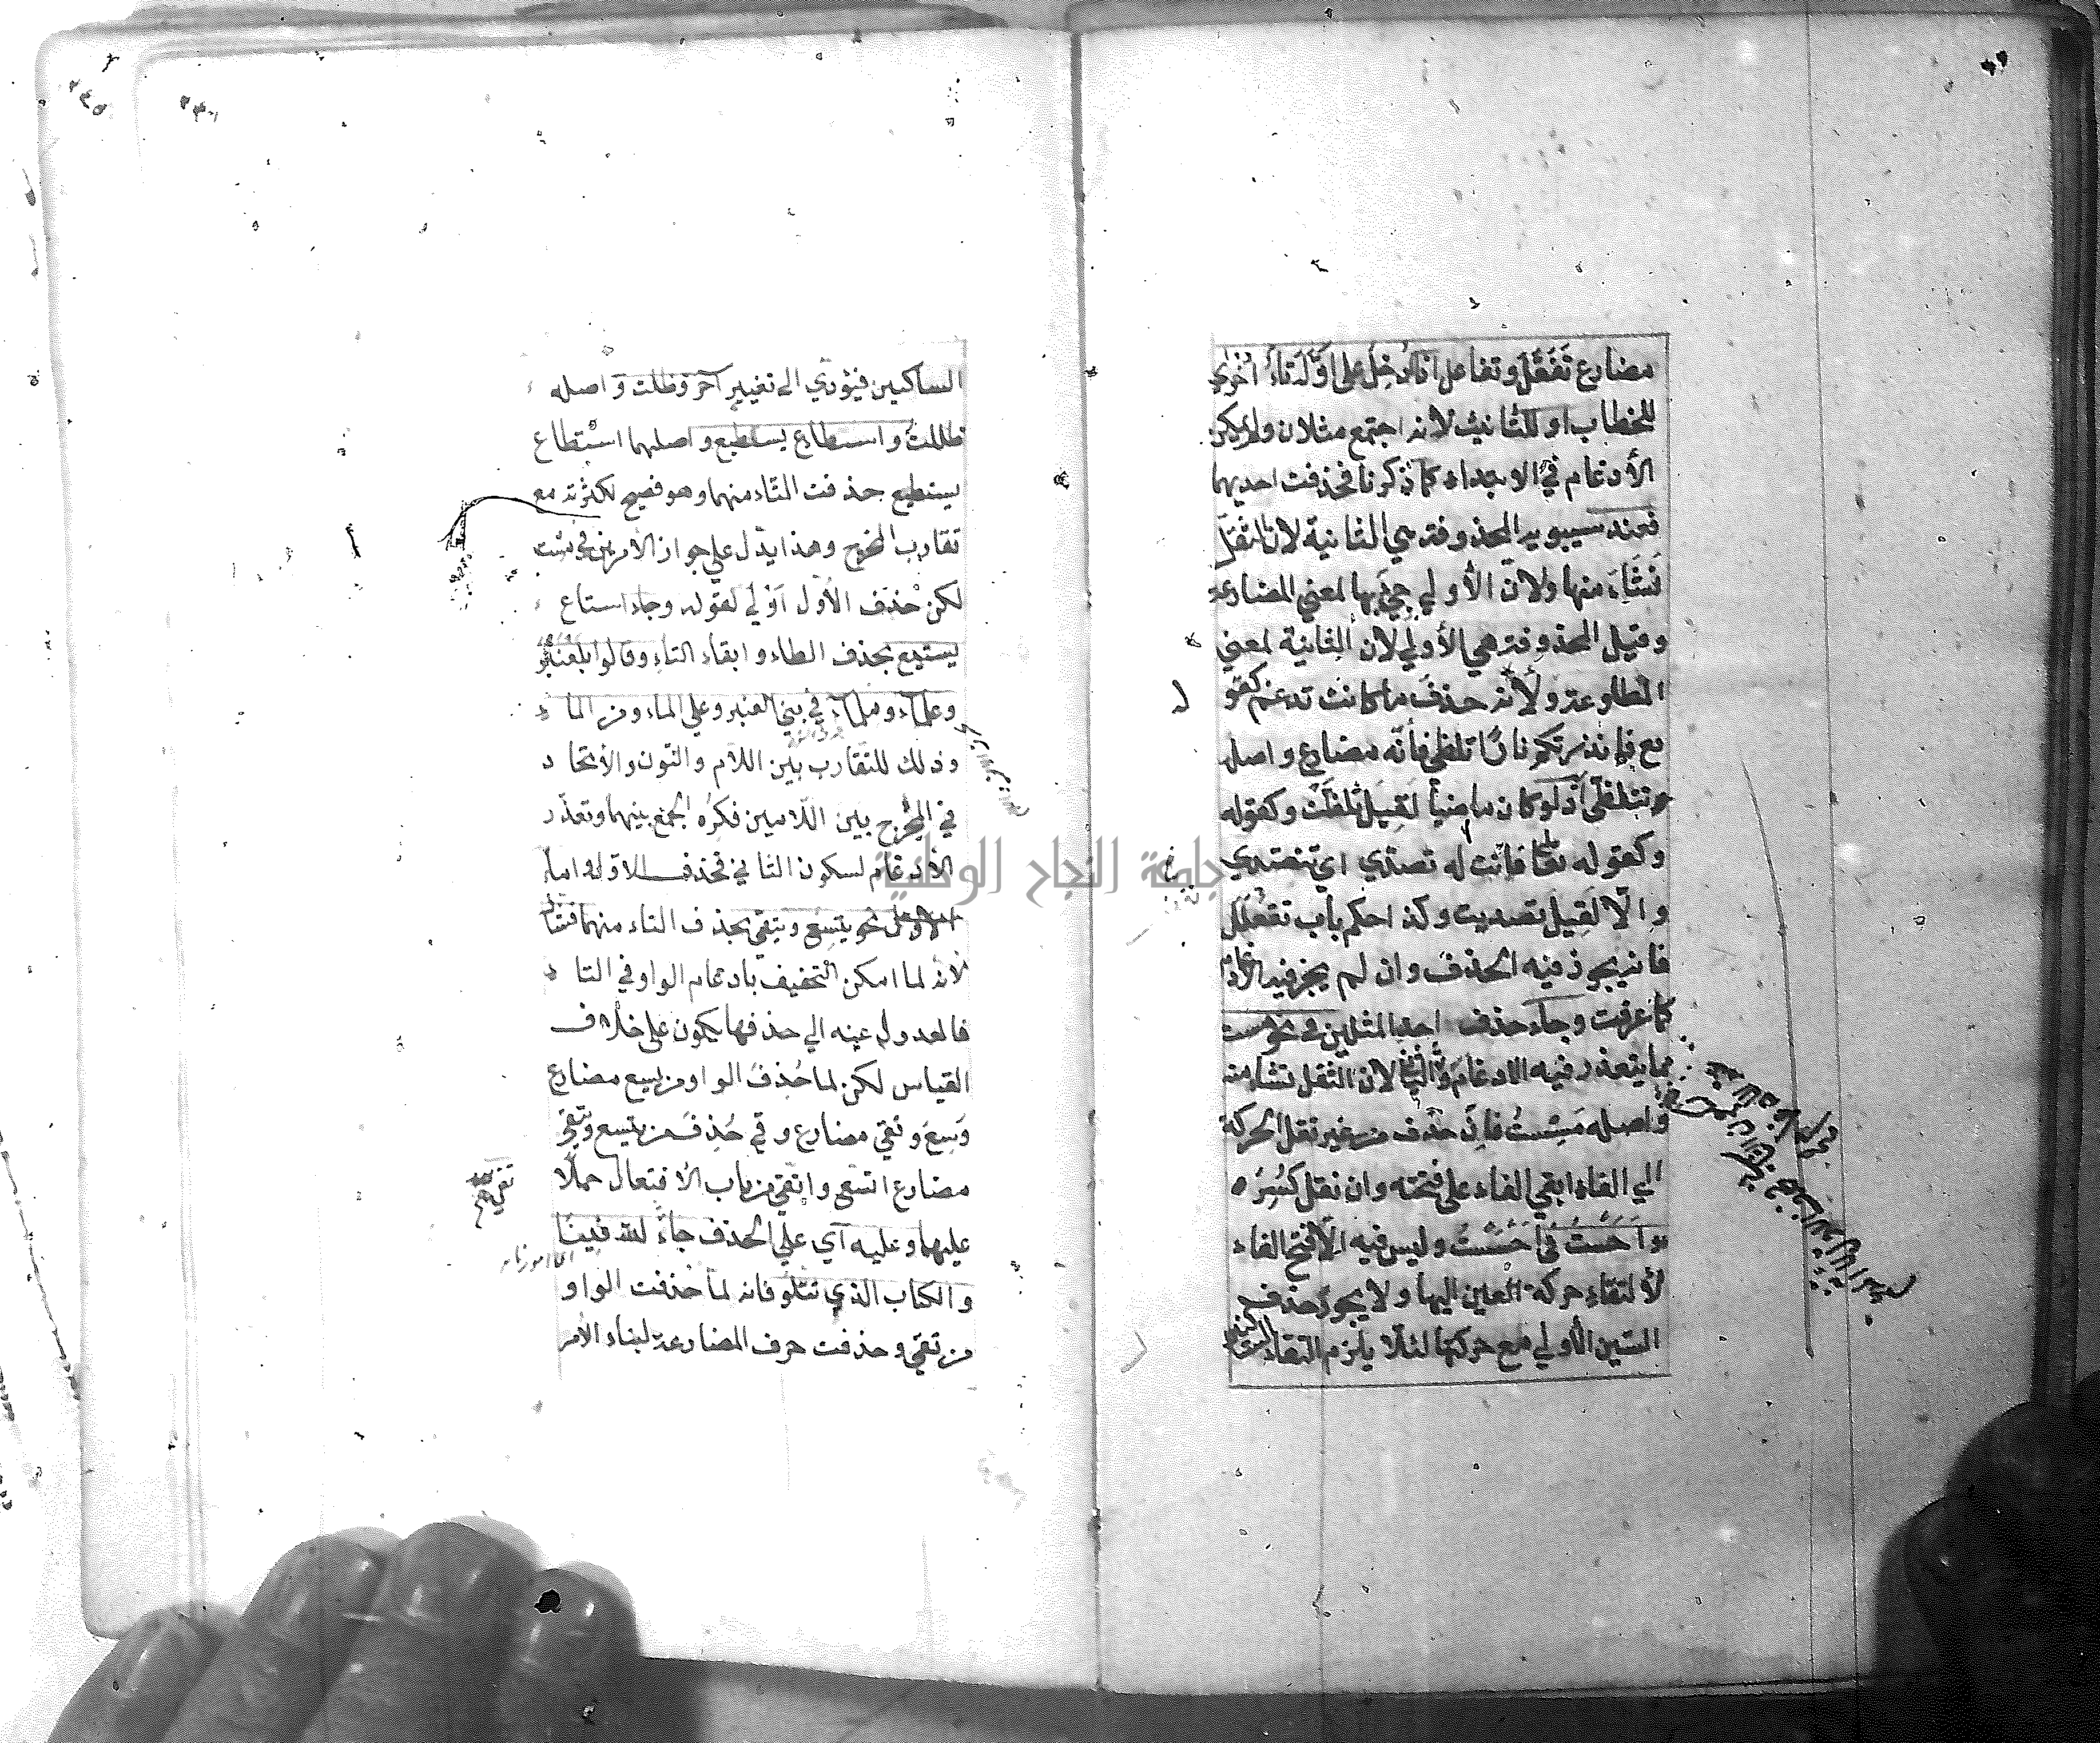 مضارع تَفَعَّلَ وتفاعل اذا اُدخِلَ على اوّله تاءٌ اُخرى
للخطاب او للتانيث لانه اجتمع مثلان ولم يمكن
الأدغام في الابتداء كما ذكرنا فحذفت احديهما
فعند سيبويه المحذوفة هي الثانية لان الثقل
نَشَاءَ منها ولانّ الأولي جيئ بها لمعني المضارعة
وقيل المحذوفة هي الأولي لان الثانية لمعني
المطاوعة ولأنه حذف ما كانت تدغم كقو
مع فانذرتكم نارًا تلظي فأنّه مضارع واصل
هو تتلظّى اذ لو كان ماضيا لقيل تلظّت وكقوله
وكقوله تعا فانت له تصدّي اي تتصدي
والّا لقيل تصديت وكذا حكم باب تفعلل
فانه يجوز فيه الحذف وان لم يجز فيه الأدغام
كما عرفت وجاء حذف احد المثلين في نحو مست
مما يتعذر فيه الادغام لان الثقل نشاء منه
واصله مَسِسْتُ فاِن حذف من غير نقل الحركة
الي الفاء ابقي الفاء على فتحته وان نقل كسره
و اَحَسْتُ في اَحْسَسْتُ وليس فيه الّا فتح الفاء
لألتقاء حركة العين اليها ولا يجوز حذف
السّين الأولي مع حركتها لئلّا يلزم التقاء الساكنين
الساكنين فيؤدي الى تغيير آخر وظلت واصله
ظللتُ واسطاع يسطيع واصلهما استطاع
يستطيع حذفت التاء منهما وهو فصيح لكثرته مع
تقارب المخرج وهذا يدل علي جواز الأمرين في مست
لكن حذف الأول اَوْلي لقوله وجاء استاع
يستيع بحذف الطاء وابقاء التاء وقالوا بلعنبر
وعلماء وملماء في بني العنبر وعلي الماء ومن الماء
وذلك للتقارب بين اللام والنّون والأتحاد
في المخرج بين اللامين فكره الجمع بينهما وتعذّر
الأدغام لسكون الثاني فحذف الاوّل واما
نحو يتسع ويتقي بحذف التاء منهما فشاذ
لأنه لما امكن التخفيف بادغام الواو في التا
فالعدول عنه الي حذفها يكون على خلاف
القياس لكن لما حُذف الواو من يسع مضارع
وَسِعَ وتقي مضارع وقي حُذِفَ من يتسع ويتّقي
مضارع اتسع واتقي من باب الأفتعال حملًا
عليهما وعليه اي علي الحذف جاءَ لله فينا
والكتاب الذي تتلو فانه لما حذفت الواو
من تقي وحذفت حرف المضارعة لبناء الأمر
جامعة النجاح الوطنية